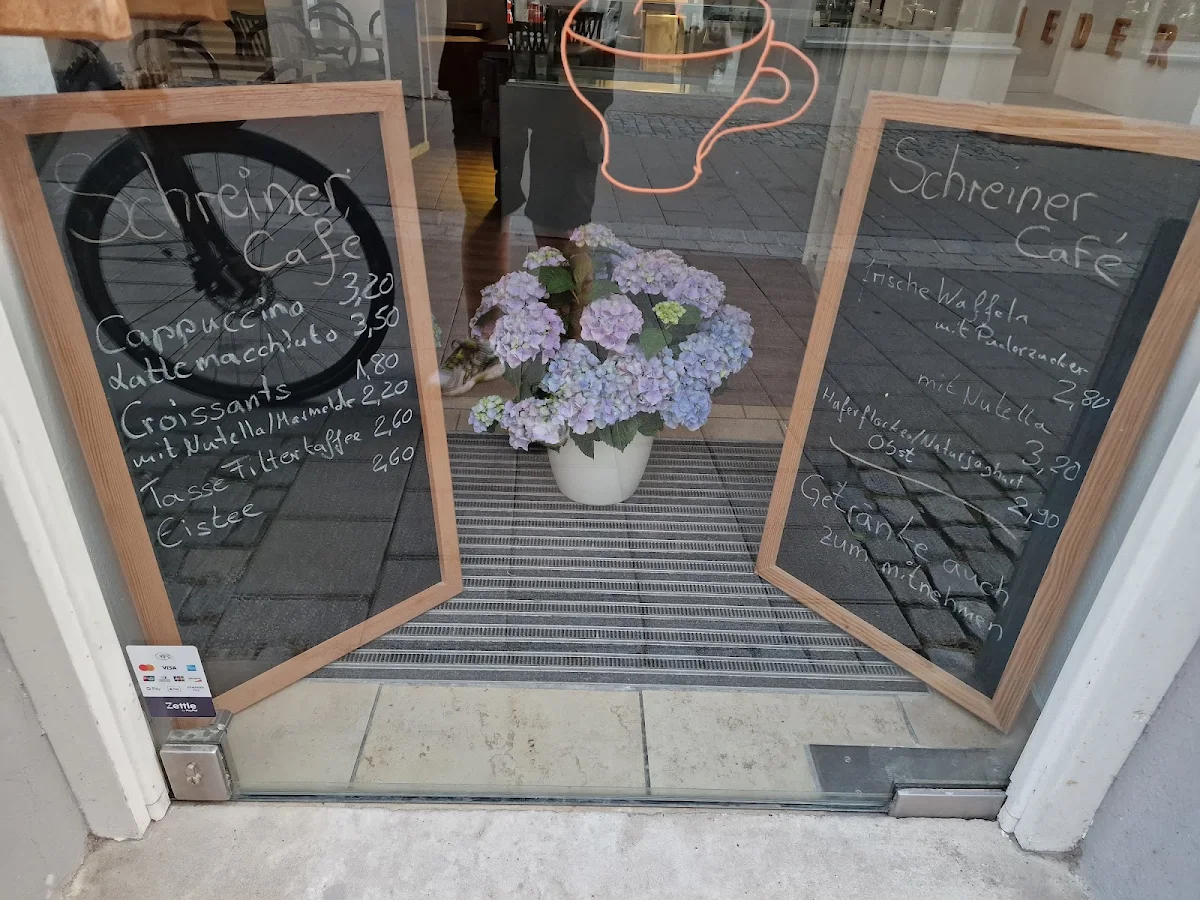 Schreiner
Cafe
Cappuccino 3,20
Lattemacchiato 3,50
Croissants 1,80
mit Nutella/Marmelade 2,20
Tasse Filterkaffee 2,60
Eistee 2,60
VISA
Pay
Zettle
Schreiner
Café
frische Waffeln
mit Puderzucker
2,80
mit Nutella
3,20
Haferflocken/Naturjoghurt
Obst
2,90
Getränke auch
zum mitnehmen
IEDER